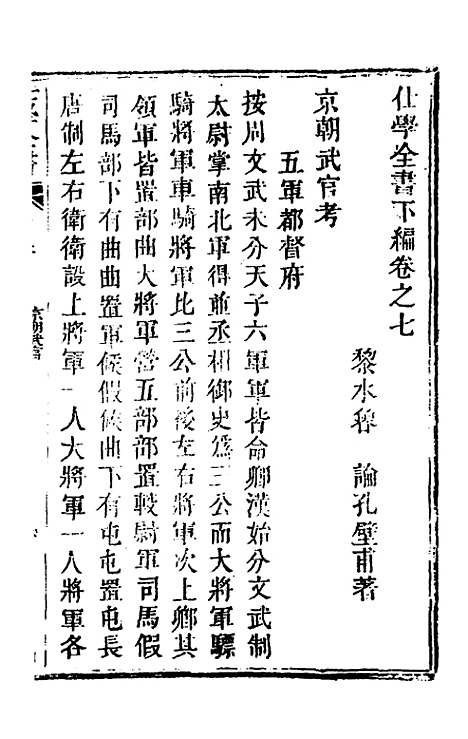 仕學全書下編卷之七
黎水魯　論孔壁甫著
京朝武官考
五軍都督府
按周文武未分天子六軍軍皆命卿漢始分文武制
太尉掌南北軍得並丞相御史爲三公而大將軍驃
騎將軍車騎將軍比三公前後左右將軍次上卿其
領軍皆置部曲大將軍營五部部置較尉軍司馬假
司馬部下有曲曲置軍候假候曲下有屯屯置屯長
唐制左右衛衛設上將軍一人大將軍一人將軍各
京朝武官